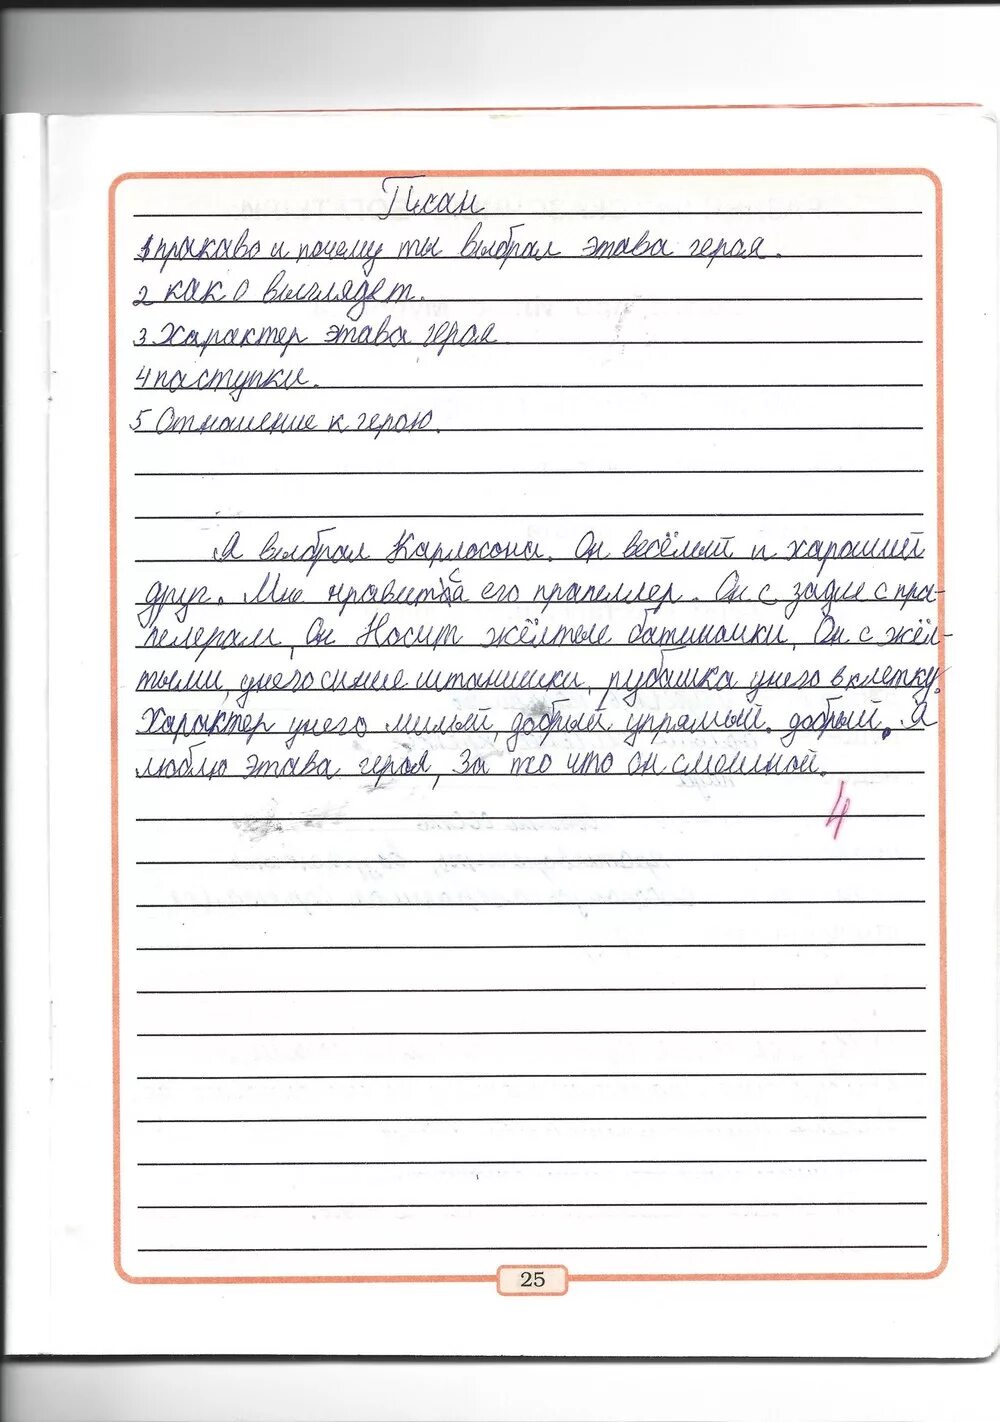 План
1 пракаво и почему ты выбрал этава героя.
2 как о выглядет.
3 Характер этава героя
4 паступки.
5 Отношение к герою.
Я выбрал Карлосона. Он весёлый и хароший
друг. Мне нравитса его прапеллер. Он с задие с пра-
пелерам, Он Носит жёлтые батиночки, Он с жёл-
тыми, унего синие штанишки, рубашка унего в клетку.
Характер унего милый, добрый упрямый. добрый. Я
люблю этава героя, За то что он смешной.
4
25